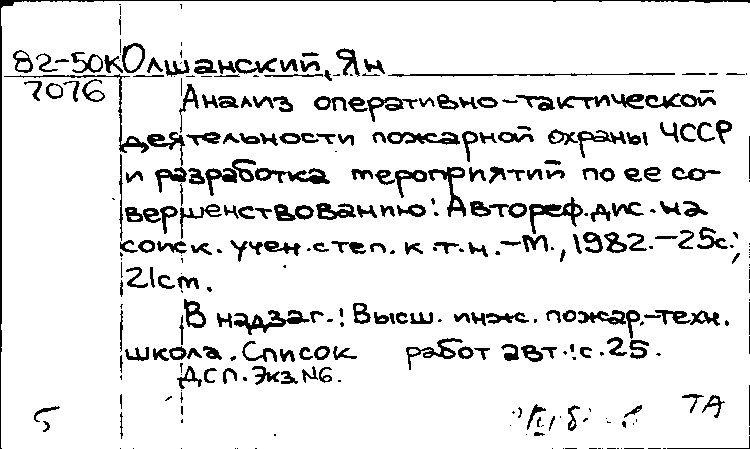 82-50К Олшанский, Ян
7076
Анализ оперативно-тактической
деятельности пожарной охраны ЧССР
и разработка мероприятий по ее со-
вершенствованию: Автореф. дис. на
соиск. учен. степ. к.т.н. - М., 1982. - 25с.;
21см.
В надзаг.: Высш. инж. пожар.-техн.
школа. Список работ авт.: с.25.
ДСП. Экз. №6.
5
ТА